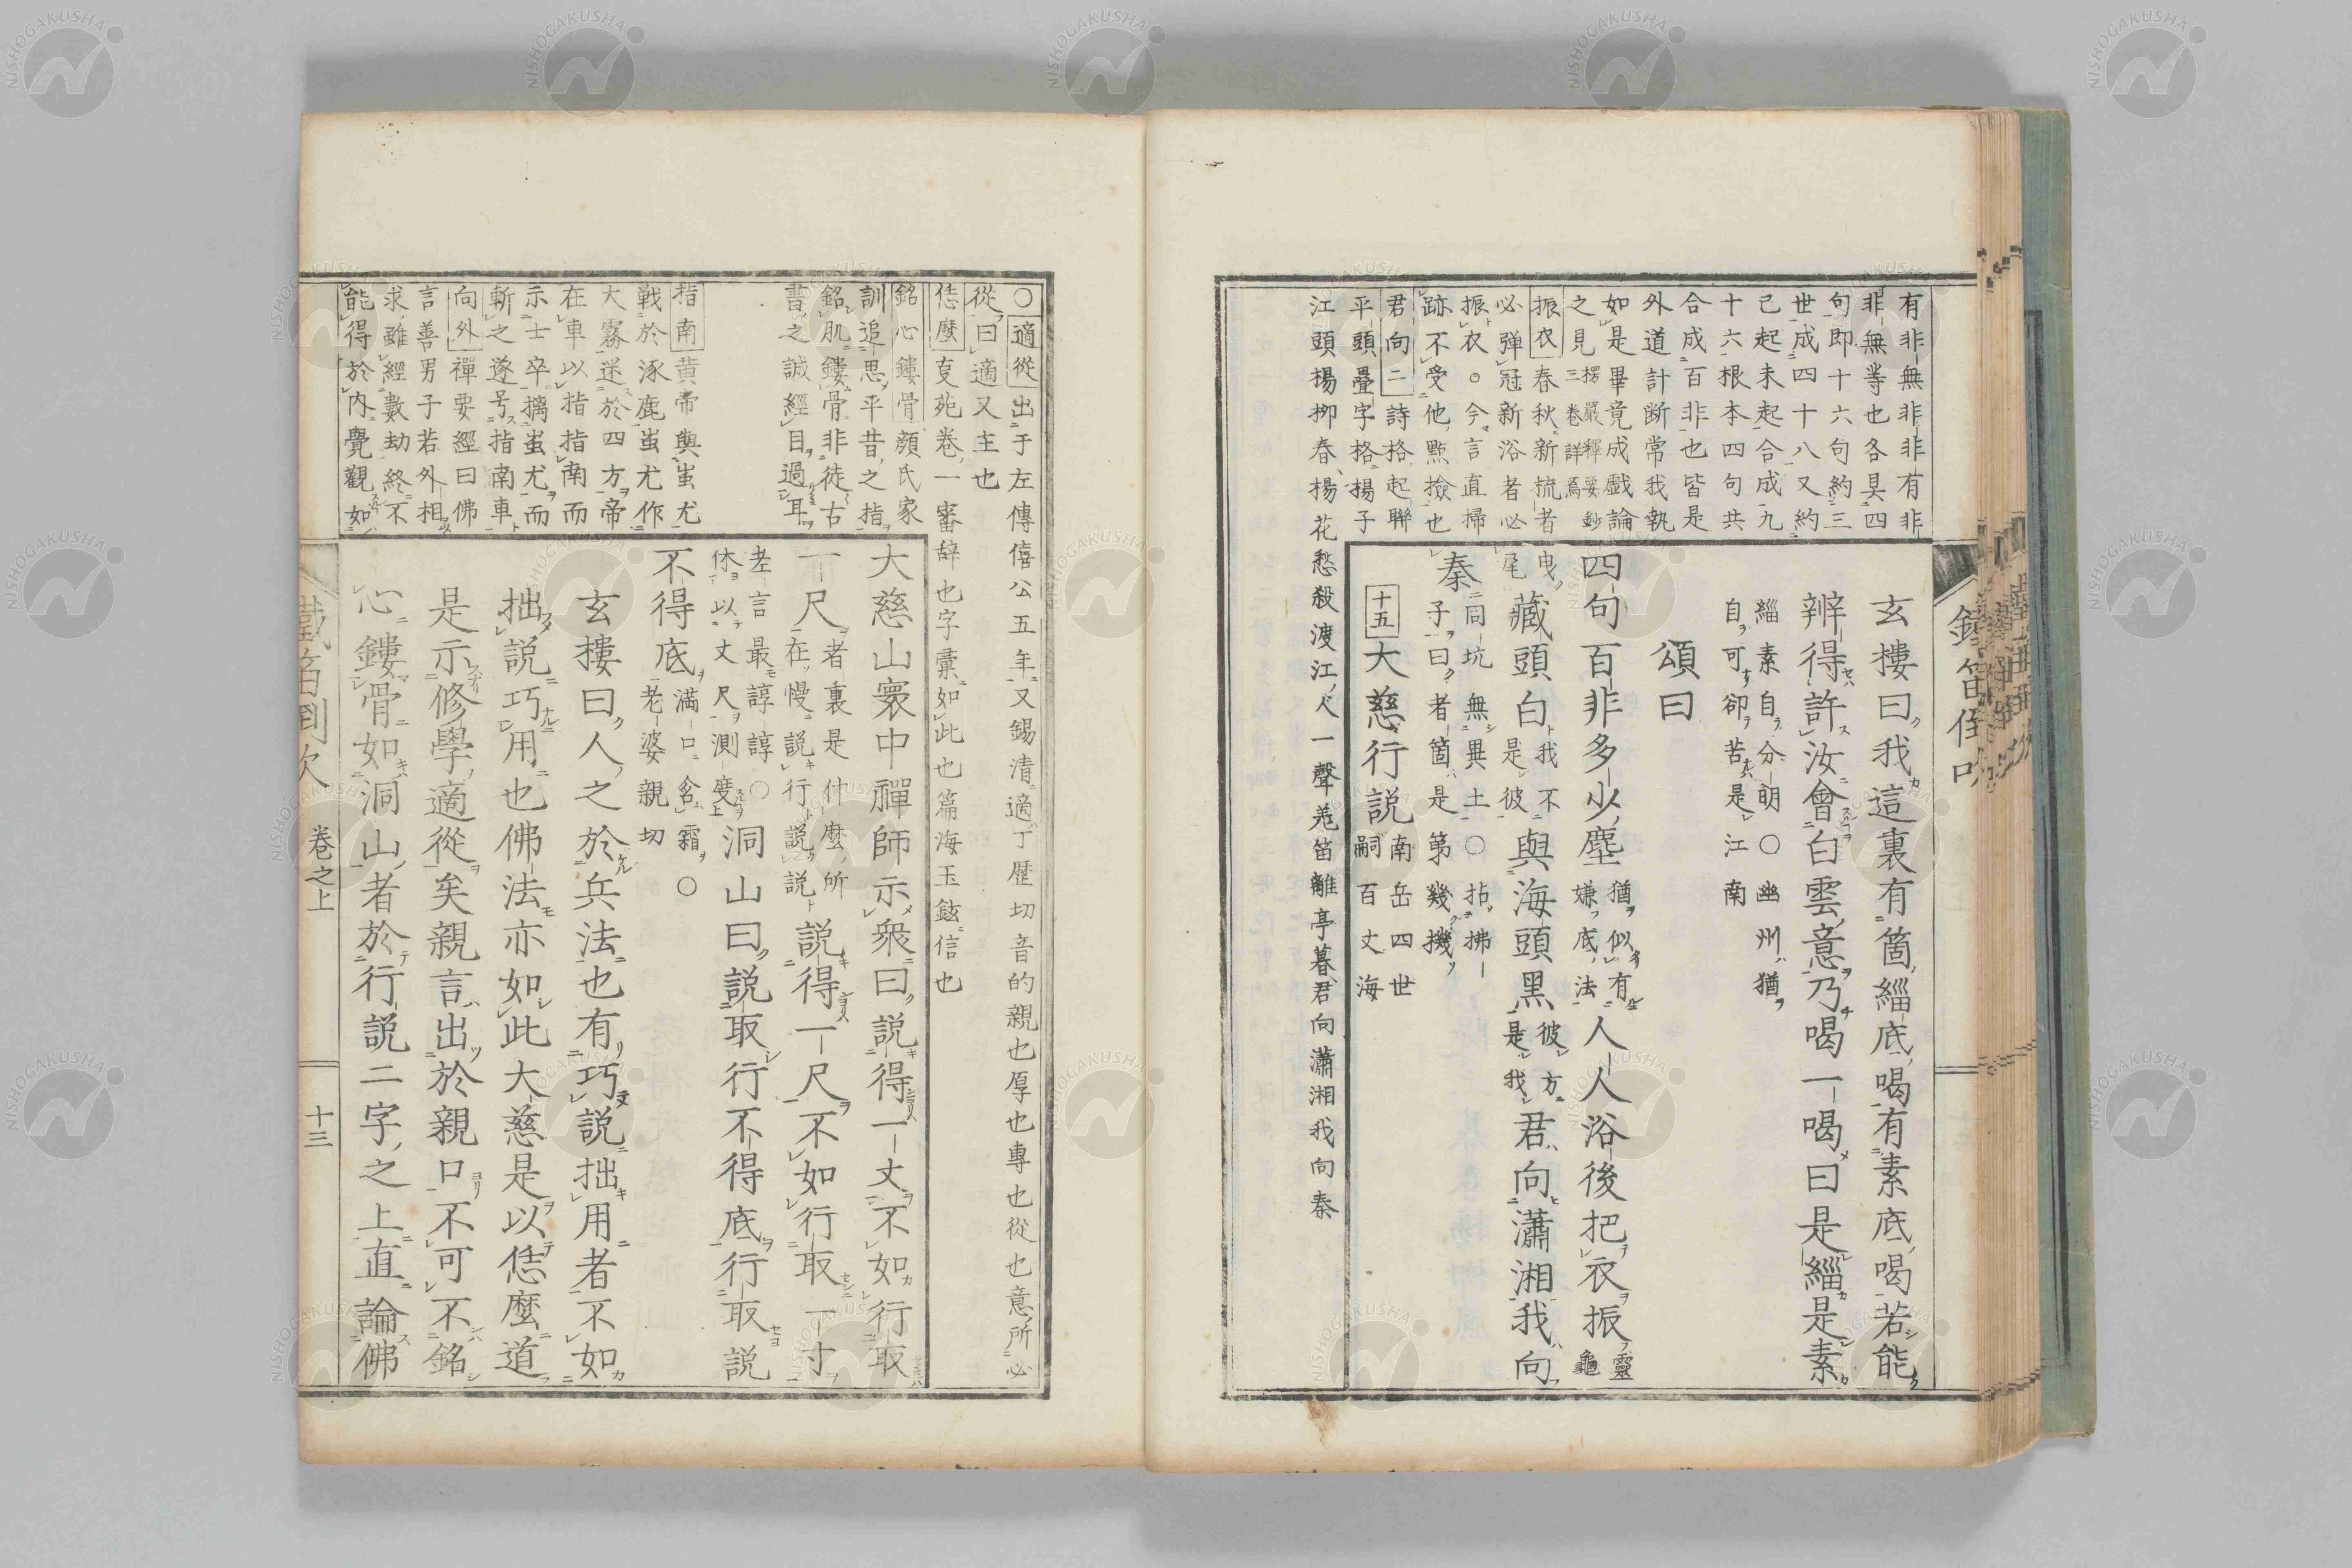 有非無非非有非
非無等也各具四
句即十六句約三
世成四十八又約
已起未起合成九
十六根本四句共
合成百非也皆是
外道計断常我執
如是畢竟成戯論
之見楞嚴釋要鈔
三卷詳焉
振衣春秋新㳘者
必弾冠新浴者必
振衣。今言直掃
跡不受他點撿也
君向二詩格起聯
平頭疊字格揚子
江頭揚柳春揚花愁殺渡江人一聲羌笛離亭暮君向瀟湘我向秦
玄樓曰我這裏有箇緇底喝有素底喝若能
辨得許汝會白雲意乃喝一喝曰是緇是素
緇素自分明〇幽州猶
自可卻苦是江南
頌曰
四句百非多少塵猶似有
嫌底法人人浴後把衣振靈龜
曳尾藏頭白我不
是彼與海頭黒彼方
是我君向瀟湘我向
秦同坑無異土〇拈拂
子曰者箇是第幾機
十五大慈行説南岳四世
嗣百丈海
鐵笛倒吹
〇適從出于左傳僖公五年又錫清適丁歴切音的親也厚也専也從也意所必
從曰適又主也
恁麼㕝苑卷一審辞也字彙如此也篇海玉鉉信也
銘心鏤骨顔氏家
訓追思平昔之指
銘肌鏤骨非徒古
書之誠經目過耳
指南黄帝與蚩尤
戰於涿鹿蚩尤作
大霧迷於四方帝
在車以指指南而
示士卒擒蚩尤而
斬之遂号指南車
向外禪要經曰佛
言善男子若外相
求雖經數劫終不
能得於内覺觀如
大慈山寰中禪師示衆曰説得一丈不如行取
一尺者裏是什麼所
在慢説行説説説得一尺不如行取一寸
老言最諄諄〇
休以丈尺測度洞山曰説取行不得底行取説
不得底満口含霜〇
老婆親切
玄樓曰人之於兵法也有巧説拙用者不如
拙説巧用也佛法亦如此大慈是以恁麼道
是示修學適從矣親言出於親口不可不銘
心鏤骨如洞山者於行説二字之上直論佛
鐵笛倒吹 卷之上 十三